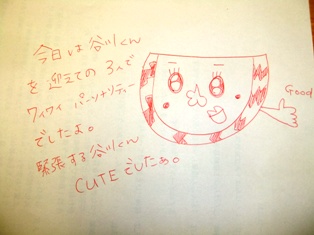 今日は谷川くん
を迎えての3人で
ワイワイパーソナリティー
でしたよ。
緊張する谷川くん
CUTEでしたぁ。
Good